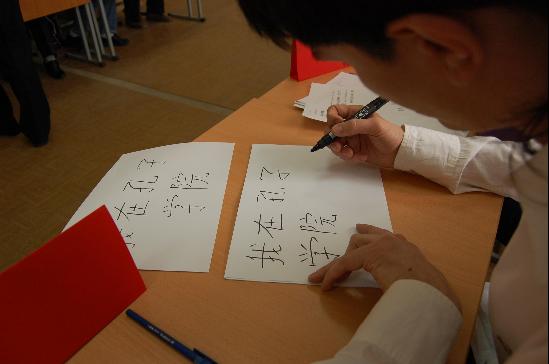 在孔子
学院
我在孔
学院